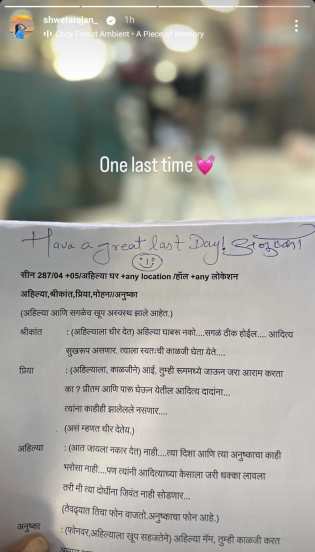 shwetarajan_ 1h
Cozy Forest Ambient • A Piece of Memory
One last time
Have a great last Day! अनुष्का
सीन 287/04 +05/अहिल्या घर +any location /हॉल +any लोकेशन
अहिल्या,श्रीकांत,प्रिया,मोहन//अनुष्का
(अहिल्या आणि सगळेच खूप अस्वस्थ झाले आहेत.)
श्रीकांत : (अहिल्याला धीर देत) अहिल्या घाबरू नको....सगळं ठीक होईल.... आदित्य
सुखरूप असणार. त्याला स्वतःची काळजी घेता येते....
प्रिया : (अहिल्याला, काळजीने) आई, तुम्ही रूममध्ये जाऊन जरा आराम करता
का ? प्रीतम आणि पारू घेऊन येतील आदित्य दादांना...
त्यांना काहीही झालेलले नसणार....
(असं म्हणत धीर देतेय.)
अहिल्या : (आत जायला नकार देत) नाही....त्या दिशा आणि त्या अनुष्काचा काही
भरोसा नाही....पण त्यांनी आदित्याच्या केसाला जरी धक्का लावला
तरी मी त्या दोघींना जिवंत नाही सोडणार...
(तेवढ्यात तिचा फोन वाजतो.अनुष्काचा फोन आहे.)
अनुष्का : (फोनवर,अहिल्याला खूप सहजतेने) अहिल्या मॅम, तुम्ही काळजी करत